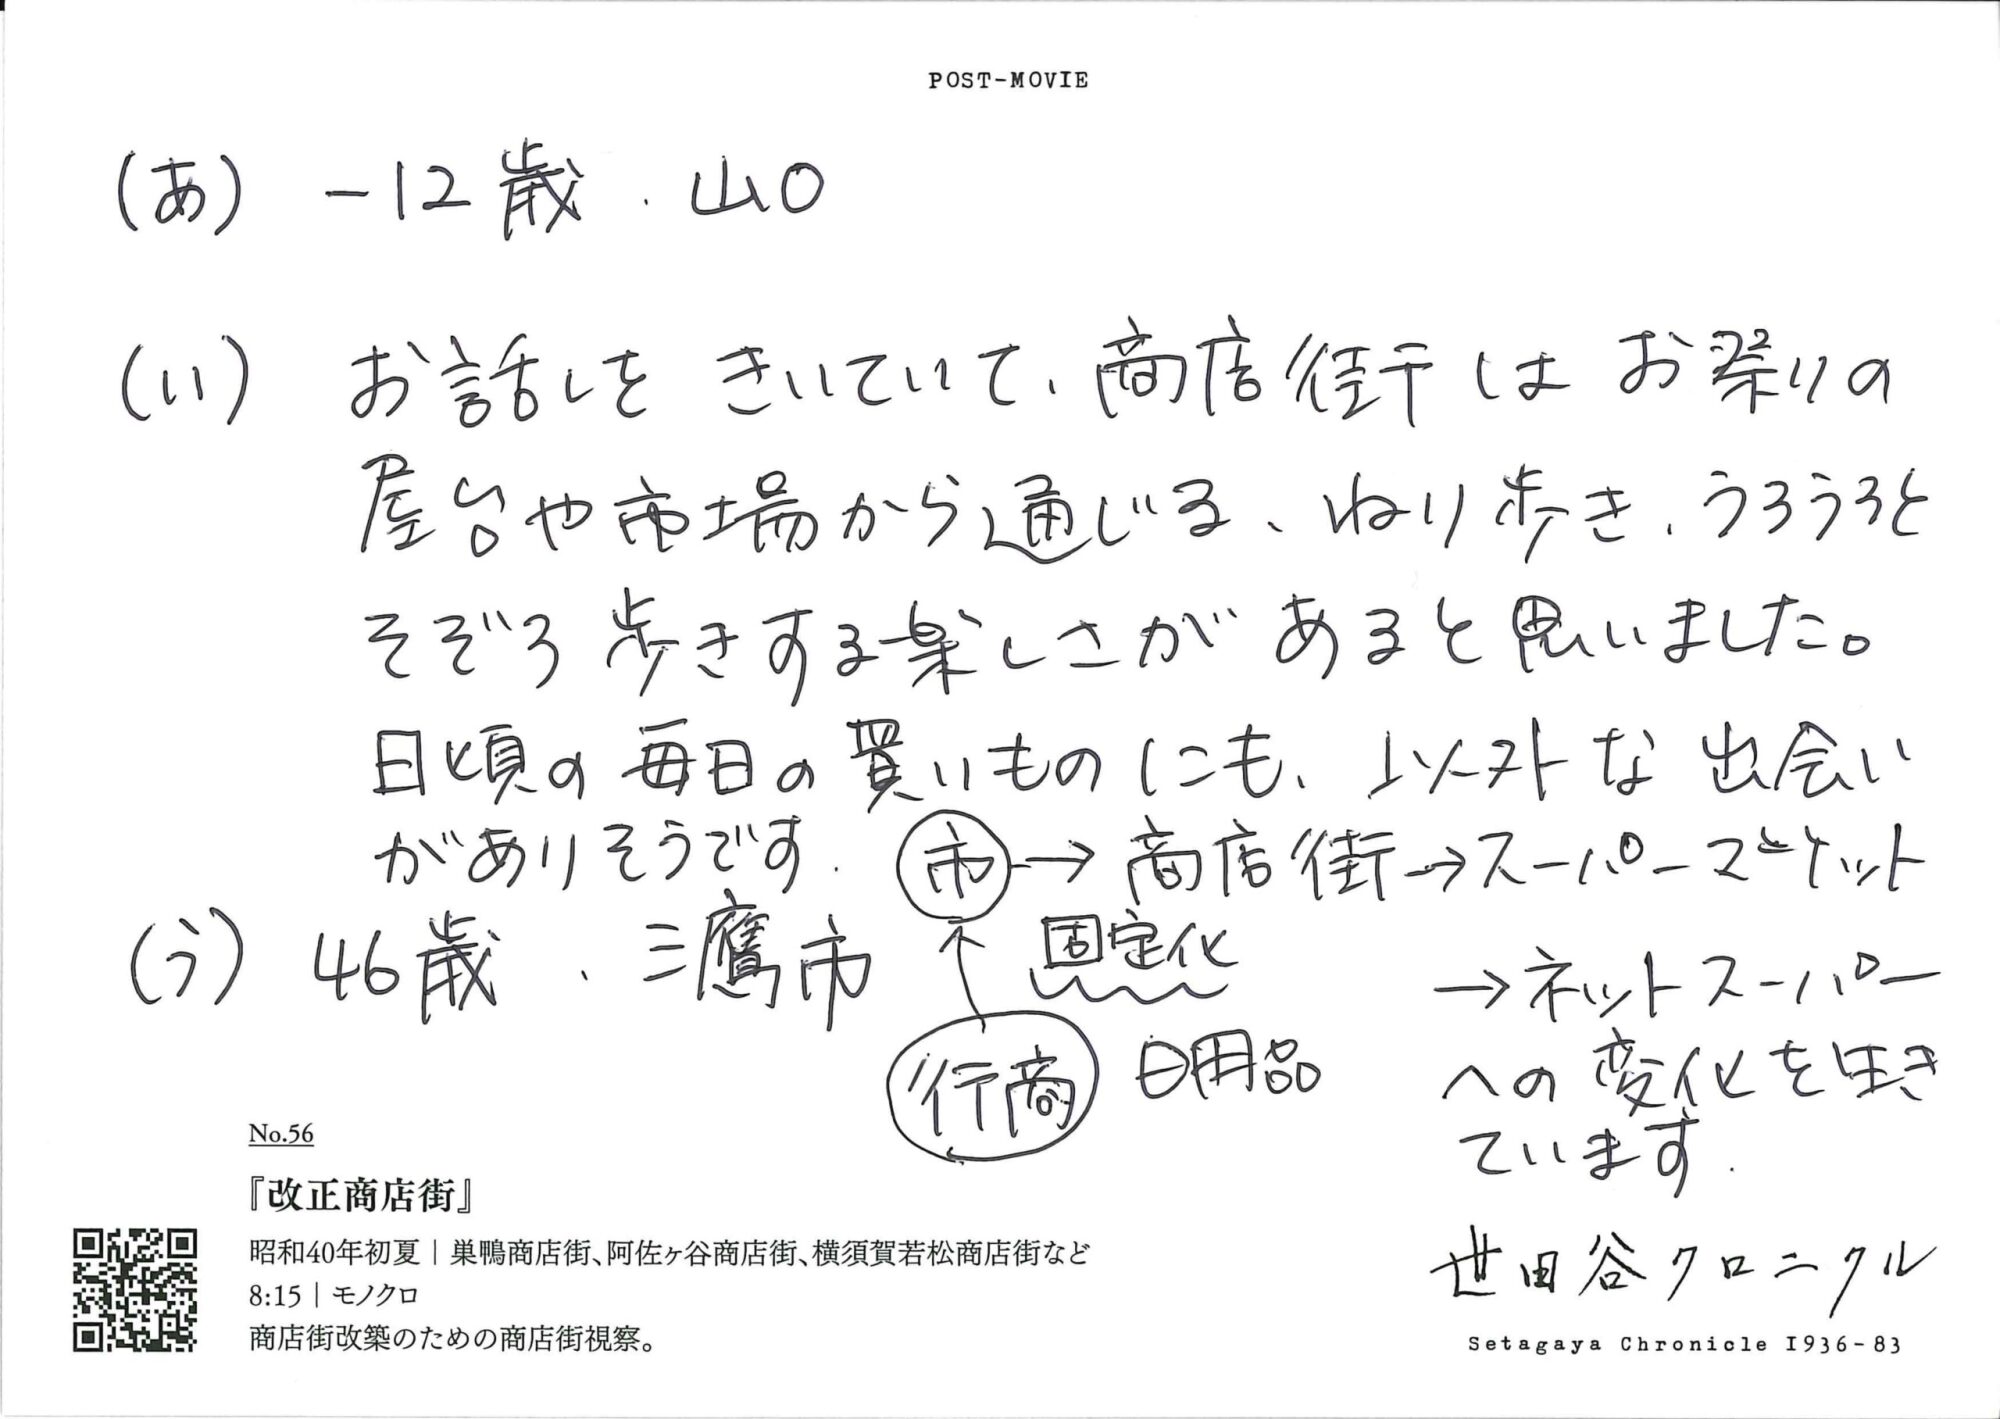 POST-MOVIE
(あ) －12歳．山口
(い) お話しをきいていて、商店街はお祭りの
屋台や市場から通じる、ねり歩き、うろうろと
そぞろ歩きする楽しさがあると思いました。
日頃の毎日の買いものにも、
な出会い
がありそうです．
市→商店街→スーパーマーケット
→ネットスーパー
への変化を生き
ています．
固定化
行商
日用品
(う) 46歳．三鷹市
No.56
『改正商店街』
昭和40年初夏｜巣鴨商店街、阿佐ヶ谷商店街、横須賀若松商店街など
8:15｜モノクロ
商店街改築のための商店街視察。
世田谷クロニクル
Setagaya Chronicle 1936-83